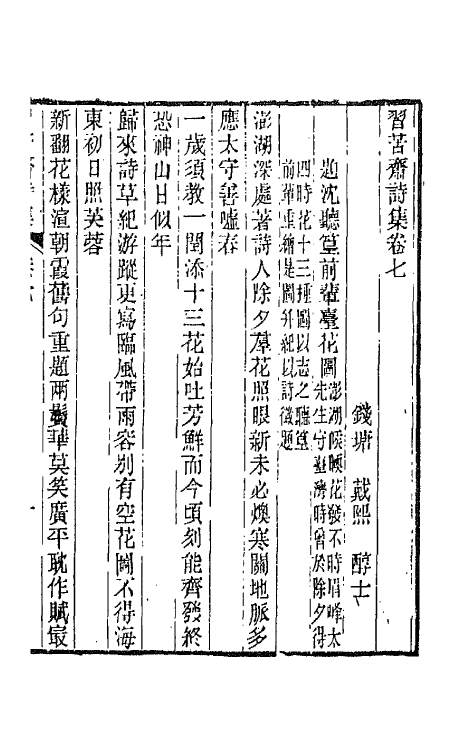 習苦齋詩集卷七
錢塘　戴熙　醇士
題沈聽篁前輩臺花圖
澎湖候暖花發不時眉峰太
先生守臺灣時曾於除夕得
四時花十三種圖以志之聽篁
前輩重繪是圖并紀以詩徵題
澎湖深處著詩人除夕羣花照眼新未必燠寒關地脈多
應太守善噓春
一歲須教一閏添十三花始吐芳鮮而今頃刻能齊發終
恐神山日似年
歸來詩草紀游蹤更寫臨風帶雨容別有空花圖不得海
東初日照芙蓉
新翻花樣渲朝霞舊句重題兩鬢華莫笑廣平耽作賦最